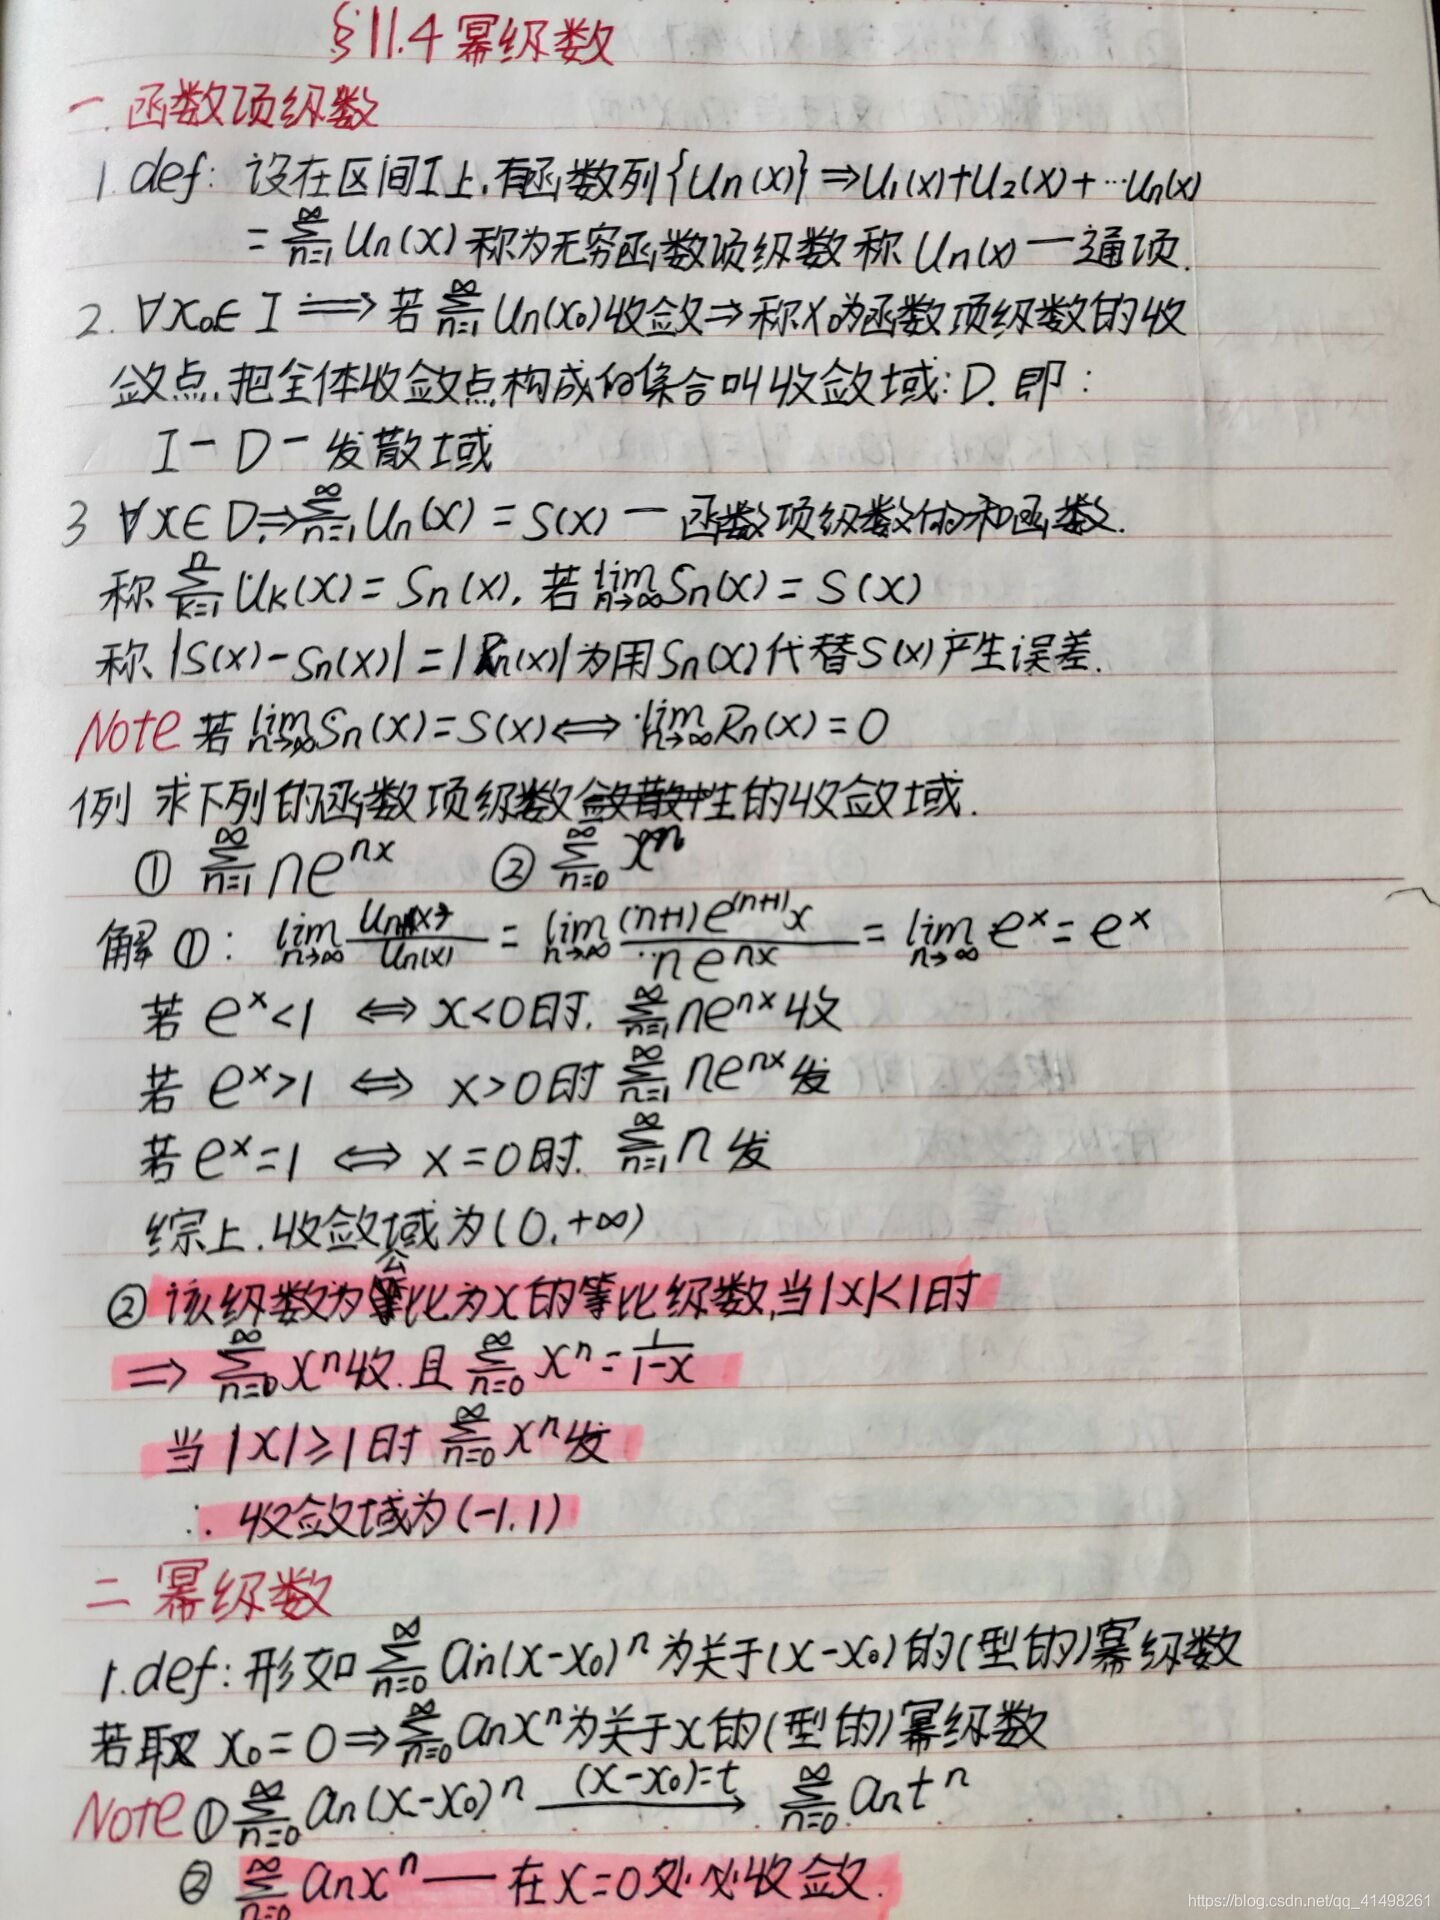 §11.4 幂级数
一.函数项级数
1. def: 设在区间I上,有函数列{Un(x)}⇒U₁(x)+U₂(x)+…Un(x)
= ∑_{n=1}^∞ Un(x) 称为无穷函数项级数 称 Un(x) 一通项.
2. ∀x₀∈I ⟹ 若 ∑_{n=1}^∞ Un(x₀)收敛⇒称x₀为函数项级数的收
敛点.把全体收敛点构成的集合叫收敛域:D. 即:
I-D-发散域
3 ∀x∈D.⇒∑_{n=1}^∞ Un(x)=S(x) 一 函数项级数的和函数.
称 ∑_{k=1}^n Uk(x)=Sn(x), 若 lim_{n→∞} Sn(x)=S(x)
称 |S(x)-Sn(x)|=|Rn(x)|为用Sn(x)代替S(x)产生误差.
Note 若 lim_{n→∞} Sn(x)=S(x)⟺ lim_{n→∞} Rn(x)=0
例 求下列的函数项级数敛散性的收敛域.
① ∑_{n=1}^∞ ne^{nx} ② ∑_{n=0}^∞ x^n
解①: lim_{n→∞} Un+1(x)/Un(x) = lim_{n→∞} (n+1)e^{(n+1)x}/ne^{nx} = lim_{n→∞} e^x = e^x
若 e^x<1 ⟺ x<0时. ∑_{n=1}^∞ ne^{nx} 收
若 e^x>1 ⟺ x>0时 ∑_{n=1}^∞ ne^{nx} 发
若 e^x=1 ⟺ x=0时. ∑_{n=1}^∞ n 发
综上.收敛域为(0,+∞)
②该级数为公比为x的等比级数,当|x|<1时
⇒ ∑_{n=0}^∞ x^n收.且 ∑_{n=0}^∞ x^n=1/(1-x)
当|x|≥1时 ∑_{n=0}^∞ x^n发
∴ 收敛域为(-1,1)
二 幂级数
1.def:形如 ∑_{n=0}^∞ an(x-x₀)^n为关于(x-x₀)的(型的)幂级数
若取 x₀=0⇒∑_{n=0}^∞ anx^n为关于x的(型的)幂级数
Note ①∑_{n=0}^∞ an(x-x₀)^n (x-x₀)=t → ∑_{n=0}^∞ ant^n
② ∑_{n=0}^∞ anx^n—在x=0处必收敛.
https://blog.csdn.net/qq_41498261